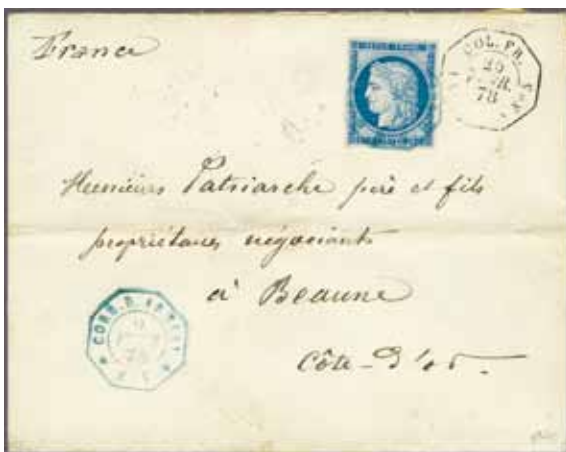 France
COL. FR.
78
Messieurs Patriarche père et fils
propriétaires négociants
à Beaune
CORR. D. ARMÉES
9
78
Côte-d'or.